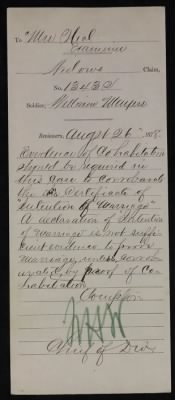 To Mrs Neal
Examiner
Widows Claim,
No. 13432
Soldier, William Mayers
Reviewers, August 26" 187
Evidence of Cohabitation
signed by required in
this case to Corroborate
the Certificate of
"Intention of Marriage"
A declaration of Intention
of Marriage is not suffi
cient evidence to prove
marriage, unless corrob
orated, by proof of Co
habitation
Chief of Div